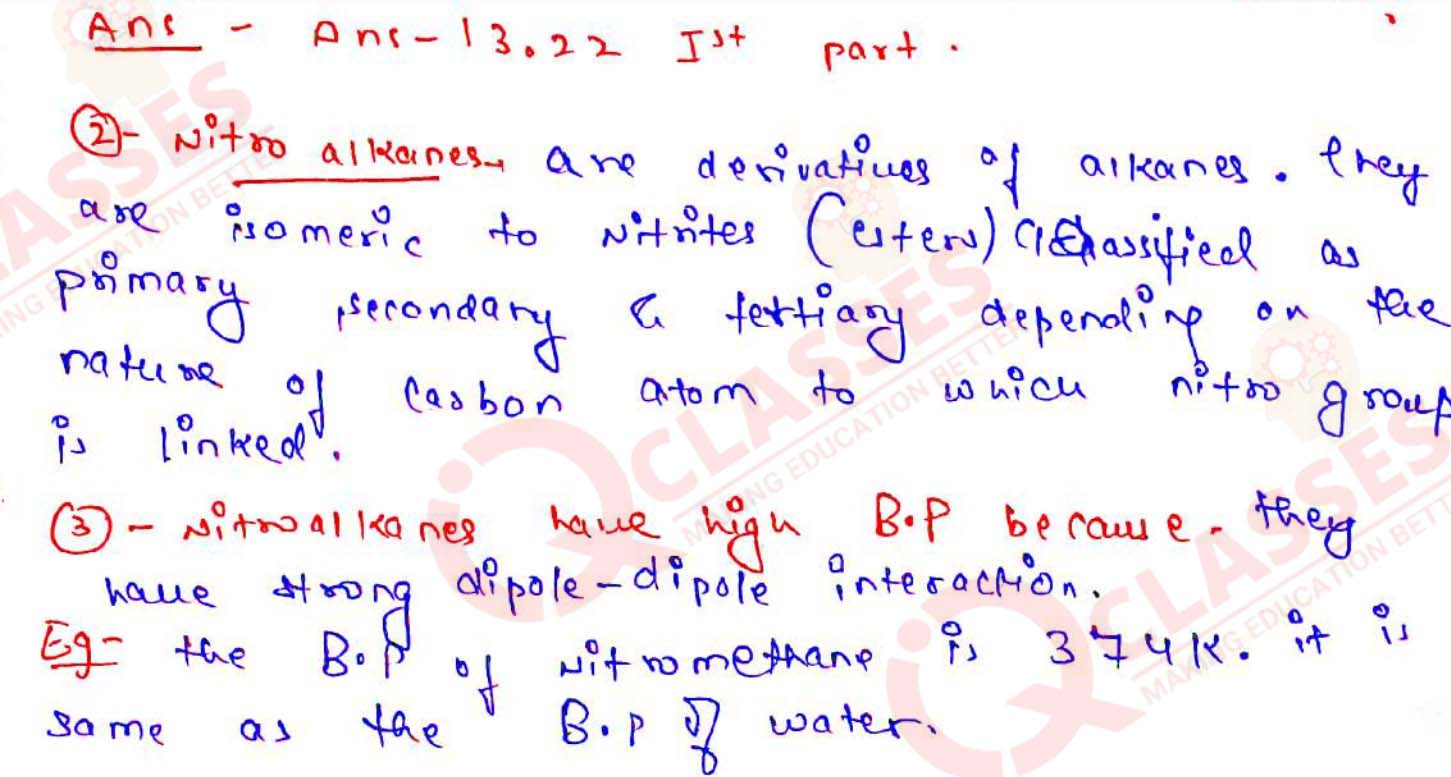 Ans - Ans-13.22 Ist part.
②- Nitro alkanes are derivatives of alkanes. they
are isomeric to Nitrites (esters) Classified as
primary secondary & tertiary depending on the
nature of carbon atom to which nitro group
is linked.
③ - Nitroalkanes have high B.P because - they
have strong dipole-dipole interaction.
Eg- the B.P of Nitromethane is 374K. it is
same as the B.P of water.
CLASSES
MAKING EDUCATION BETTER